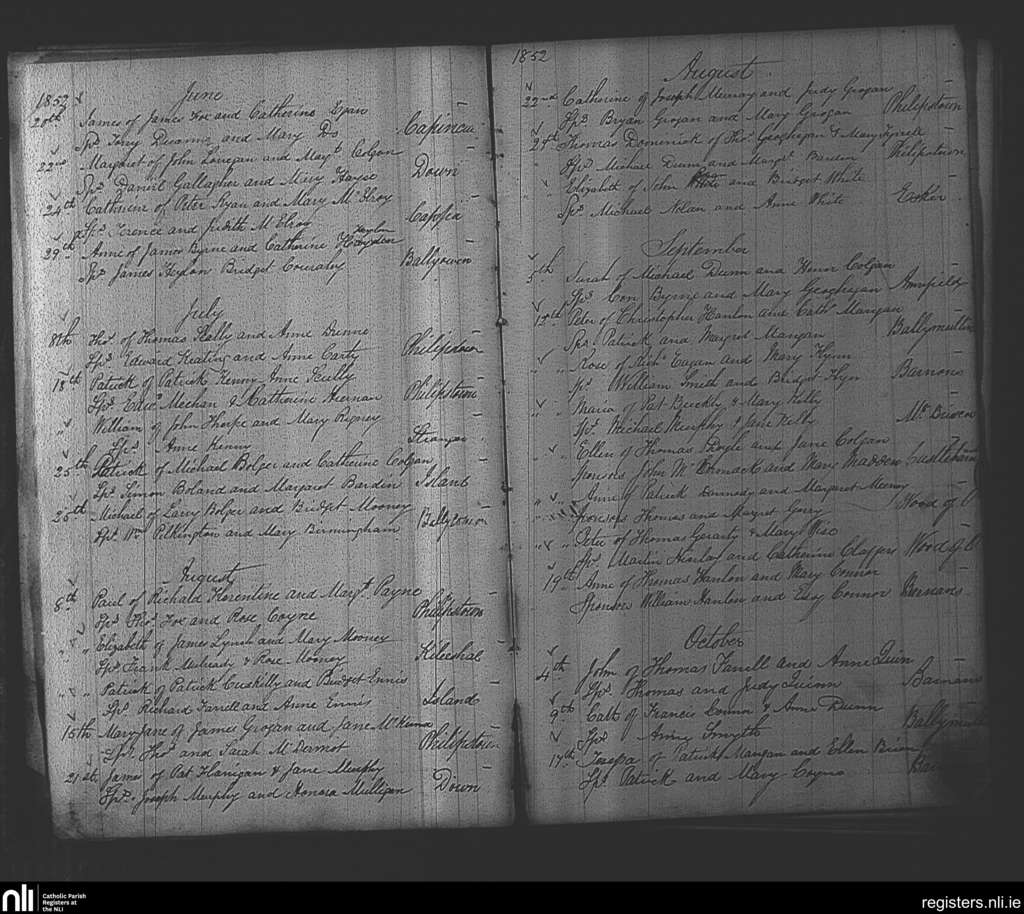 1852 June
20th James of James Foe and Catherine Egan
Sprs Torry Duanne and Mary Do Capincur
22nd Margaret of John Lonegan and Margt Colgan
Sprs Daniel Gallagher and Mary Hayse Down
24th Catherine of Peter Ryan and Mary McElroy
Sprs Terence and Judith McElroy Cappia
29th Anne of James Byrne and Catherine Hayden
Heylon
Sprs James Heylon Bridget Ballycowen
July
8th Thos of Thomas Kelly and Anne Dunne
Sprs Edward Keating and Anne Carty Philipstown
18th Patrick of Patrick Kenny Anne Scully
Sprs Edwd Meehan & Catherine Heenan Philipstown
" William of John Thorpe and Mary Rigney
Sprs Anne Kenny Stranger
25th Patrick of Michael Bolger and Catherine Colgan
Sprs Simon Boland and Margaret Barden Island
25th Michael of Larry Bolger and Bridget Mooney
Sprs Wm Pilkington and Mary Birmingham
August
8th Paul of Richard Florentine and Margt Payne
Sprs Thos Foe and Rose Coyne Philipstown
" " Elizabeth of James Lynch and Mary Mooney
Sprs Frank Mulready & Rose Mooney Kileeshal
" " Patrick of Patrick Cuskelly and Bridget Ennis
Sprs Richard Farrell and Anne Ennis Island
15th Mary Jane of James Grogan and Jane McKenna
Sprs Thos and Sarah McDermot Philipstown
21st James of Pat Flanigan & Jane Murphy
Sprs Joseph Murphy and Honora Mulligan Down
1852
August
22nd Catherine of Joseph Murray and Judy Grogan
Sprs Bryan Grogan and Mary Grogan Philipstown
25th Thomas Domenick of Thos Geoghegan & Mary Tyrell
Sprs Michael Dunn and Margt Barden Philipstown
" Elizabeth of John White and Bridget White
Sprs Michael Nolan and Anne White Esker
September
5th Sarah of Michael Dunn and Honor Colgan
Sprs Con Byrne and Mary Geoghegan Annfield
12th Peter of Christopher Hanlon and Cathe Mangan
Sprs Patrick and Margret Mangan
" " Rose of Richd Eagan and Mary Flynn
Sprs William Smith and Bridget Flyn Barnons
" " Maria of Pat Buckly & Mary Kelly
Sprs Michael Murphy & Jane Kelly Mt Briscoe
" " Ellen of Thomas Doyle and Jane Colgan
Sponsors John McCormack and Mary Madden
" " Anne of Patrick Kennedy and Margaret Meeny
Sponsors Thomas and Margret Gorry Wood of O
" " Peter of Thomas Geraty & Mary Wise
Sprs Martin Hinlay and Catherine Claffers Wood of O
19th Anne of Thomas Hanlon and Mary Connor
Sponsors William Hanlon and Essy Connor Barnans
October
4th John of Thomas Farrell and Anne Quin
Sprs Thomas and Judy Quinn Barnans
9th Cath of Francis Connor & Anne Dunn
Sprs Anny Smyth
17th of Patrick Mangan and Ellen Brien
Sprs Patrick and Mary Coyne
nli Catholic Parish
Registers at
the NLI
registers.nli.ie